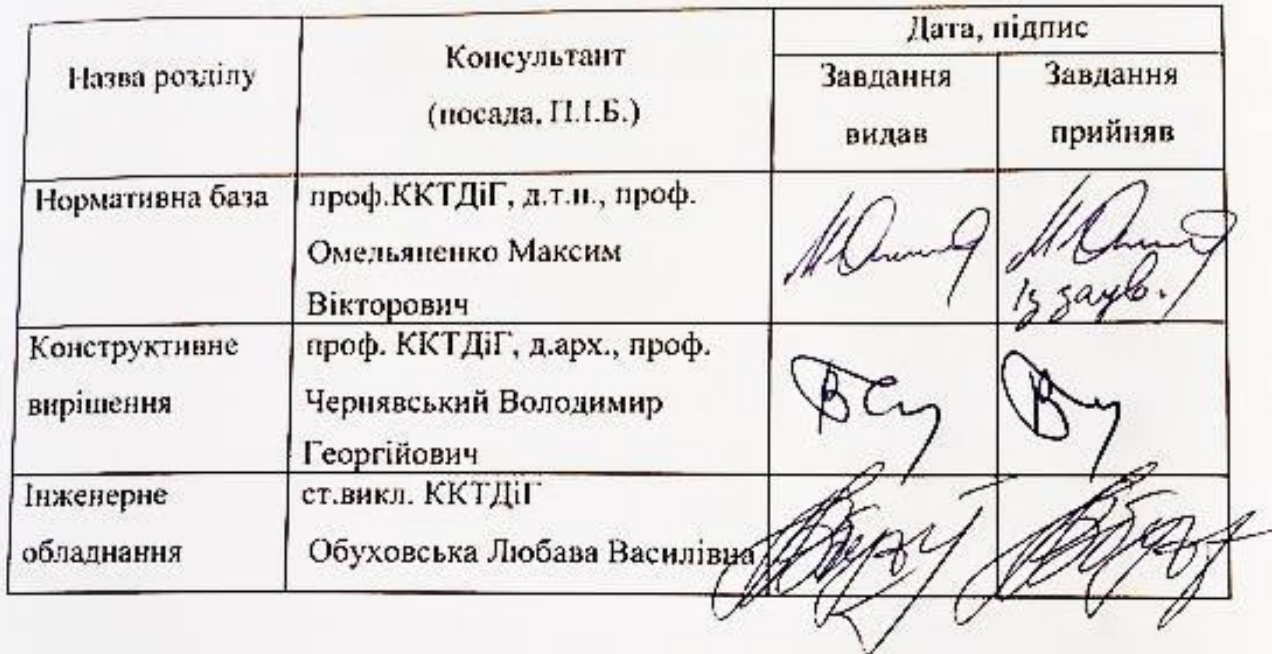 Назва розділу
Консультант
(посада, П.І.Б.)
Дата, підпис
Завдання
видав
Завдання
прийняв
Нормативна база
проф.ККТДіГ, д.т.н., проф.
Омельяненко Максим
Вікторович
із заув.
Конструктивне
вирішення
проф. ККТДіГ, д.арх., проф.
Чернявський Володимир
Георгійович
Інженерне
обладнання
ст.викл. ККТДіГ
Обуховська Любава Василівна